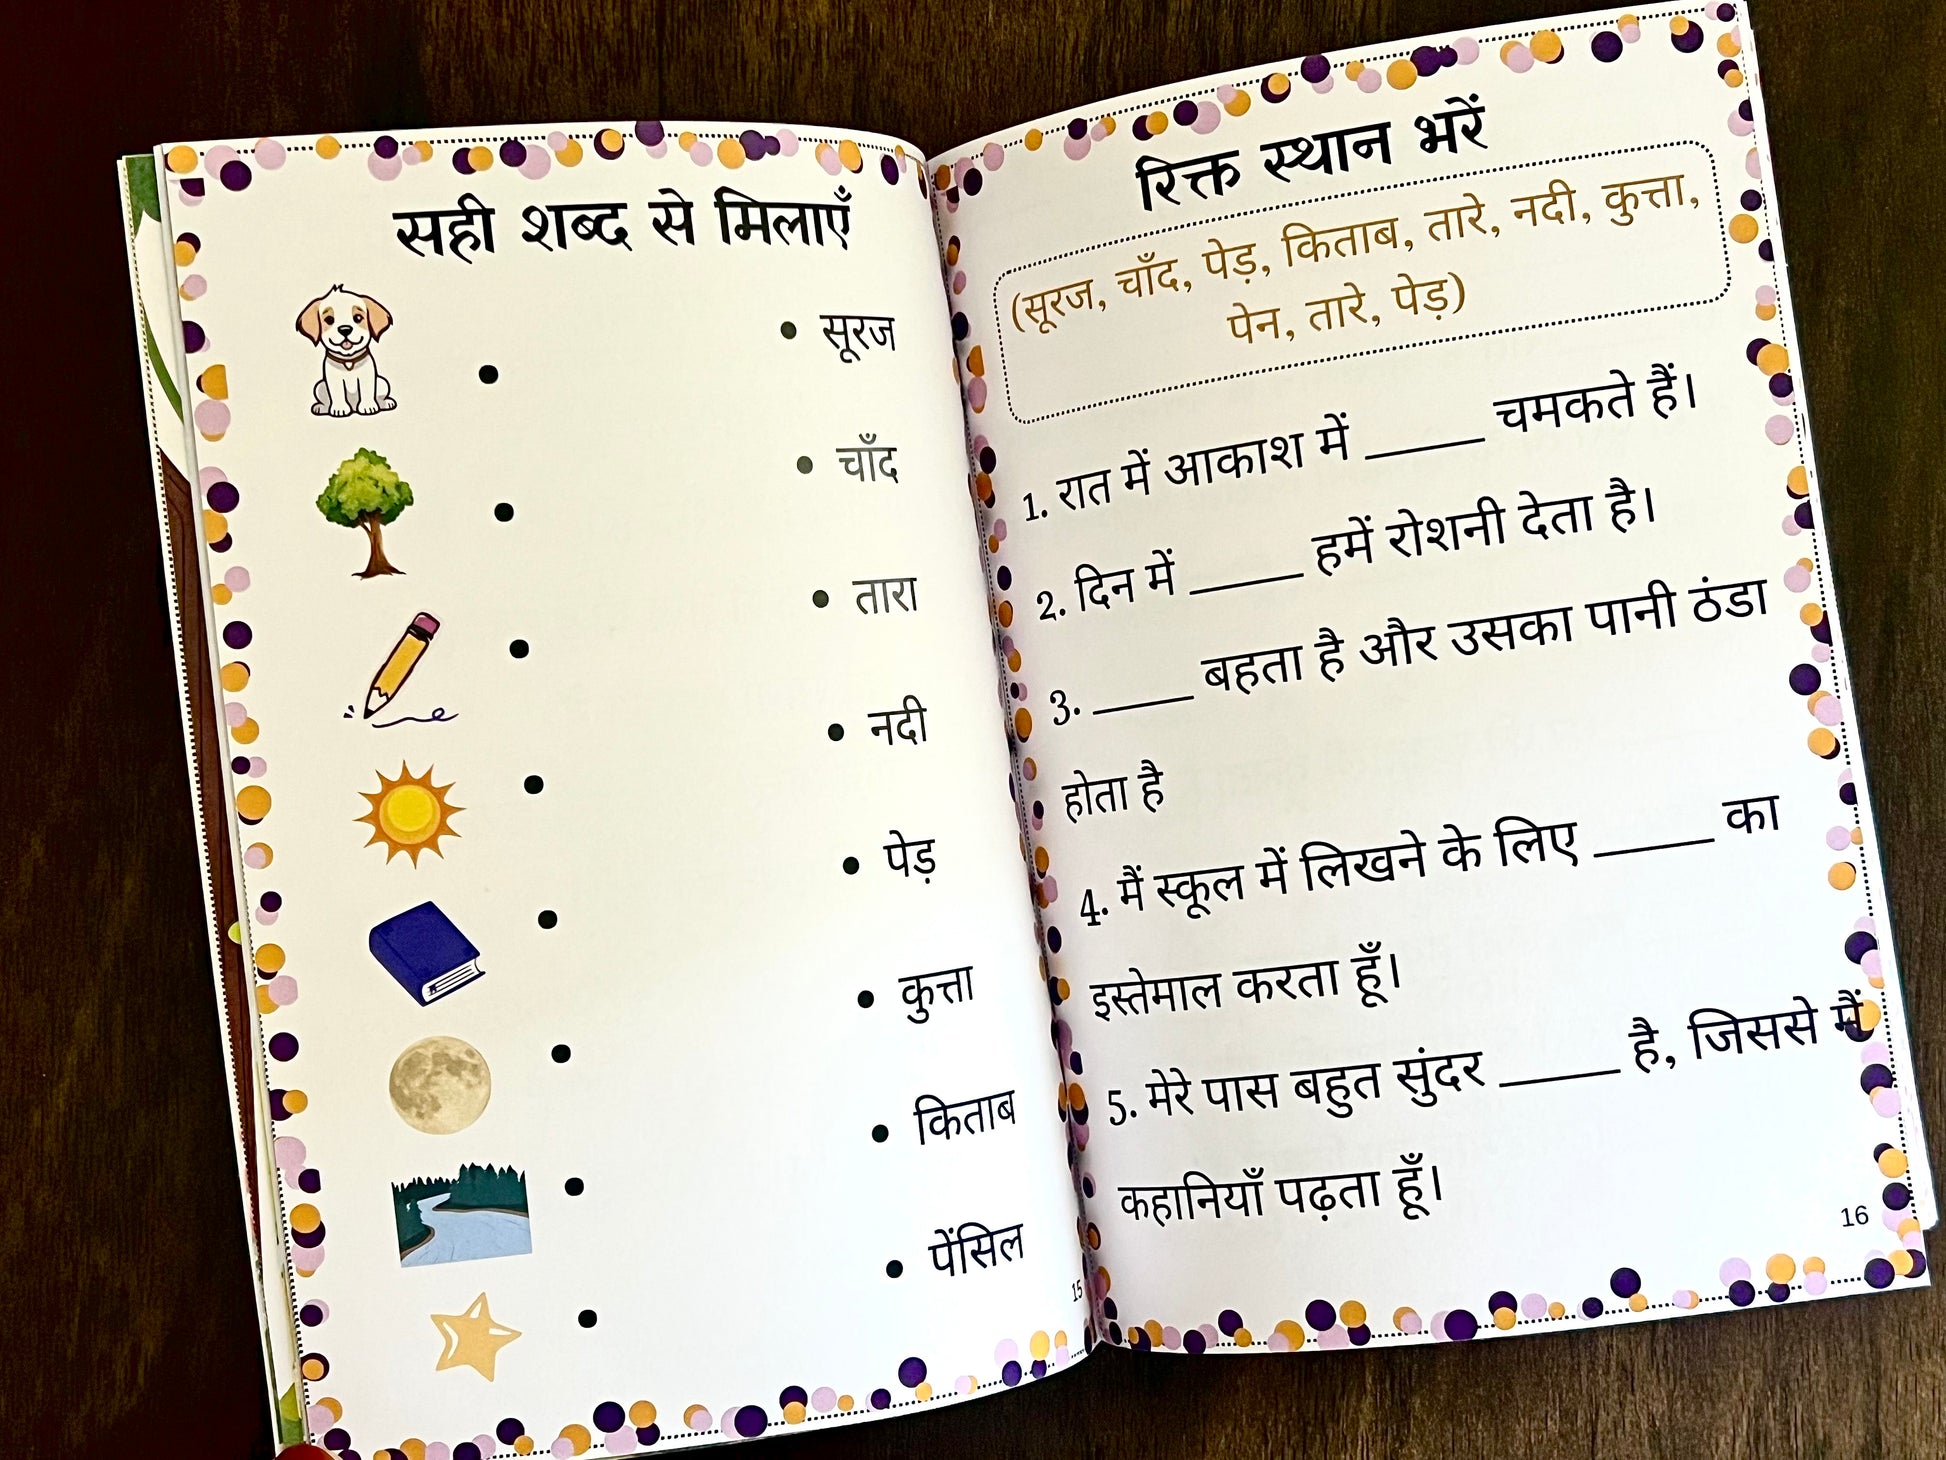 सही शब्द से मिलाएँ
• सूरज
• चाँद
• तारा
• नदी
• पेड़
• कुत्ता
• किताब
• पेंसिल
15
रिक्त स्थान भरें
(सूरज, चाँद, पेड़, किताब, तारे, नदी, कुत्ता,
पेन, तारे, पेड़)
1. रात में आकाश में _____ चमकते हैं।
2. दिन में _____ हमें रोशनी देता है।
3. _____ बहता है और उसका पानी ठंडा
होता है
4. मैं स्कूल में लिखने के लिए _____ का
इस्तेमाल करता हूँ।
5. मेरे पास बहुत सुंदर _____ है, जिससे मैं
कहानियाँ पढ़ता हूँ।
16